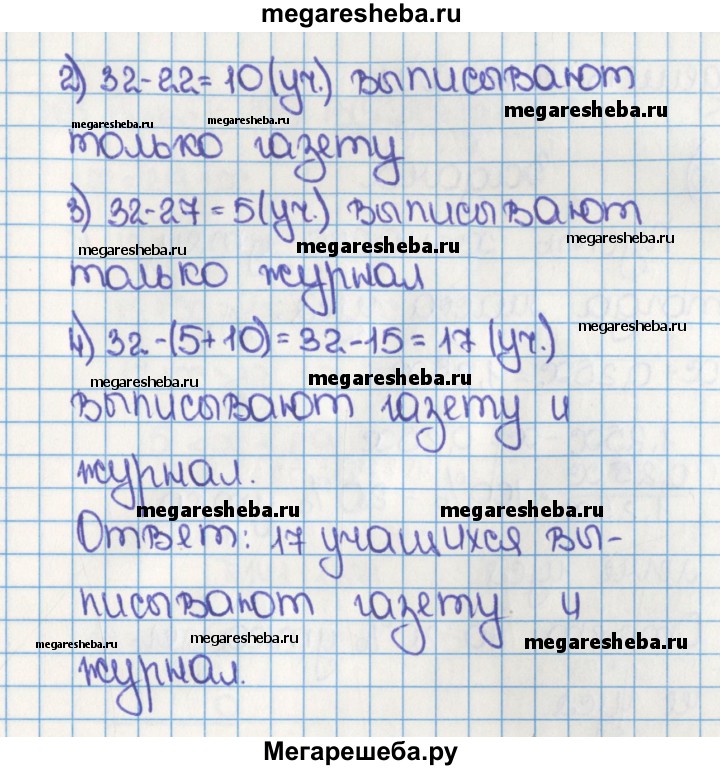 megaresheba.ru
2) 32-22=10(уч.) выписывают
megaresheba.ru
megaresheba.ru
megaresheba.ru
только газету
3) 32-27=5(уч.) выписывают
megaresheba.ru
megaresheba.ru
megaresheba.ru
только журнал
4) 32-(5+10)=32-15=17 (уч.)
megaresheba.ru
megaresheba.ru
megaresheba.ru
выписывают газету и
журнал.
megaresheba.ru
megaresheba.ru
Ответ: 17 учащихся вы-
писывают газету и
megaresheba.ru
megaresheba.ru
megaresheba.ru
журнал.
Мегарешеба.ру